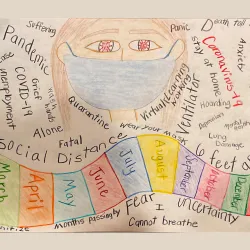 Suffering
Panic
Death toll
Pandemic
Coronavirus
Anxiety
stay at home
unemployment
COVID-19
Grief
Wash hands
Quarantine
Virtual learning
Ventilator
Hoarding
Alone
Wear your mask
Lung
Damage
Fatal
Social Distance
6 feet
March
April
May
June
July
August
September
October
December
Months passing by
Fear
I
Cannot breathe
uncertainty